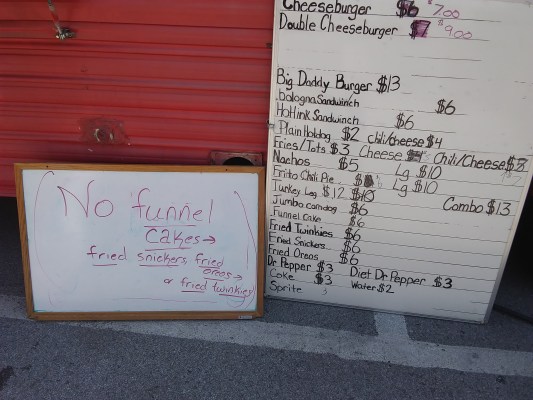 No funnel
cakes→
fried snickers, fried
oreos→
or fried twinkies!
Cheeseburger $6 $7.00
Double Cheeseburger $7 $9.00
Big Daddy Burger $13
bologna Sandwinch $6
Hotlink Sandwinch $6
Plain Hotdog $2 chili/cheese $4
Fries/Tots $3 Cheese Chili/Cheese
Nachos $5 Lg $10
Frito Chili Pie Lg $10
Turkey Leg $12 $10 Combo $13
Jumbo corndog $6
Funnel Cake $6
Fried Twinkies $6
Fried Snickers $6
Fried Oreos $6
Dr Pepper $3 Diet Dr Pepper $3
Coke $3 Water $2
Sprite 3